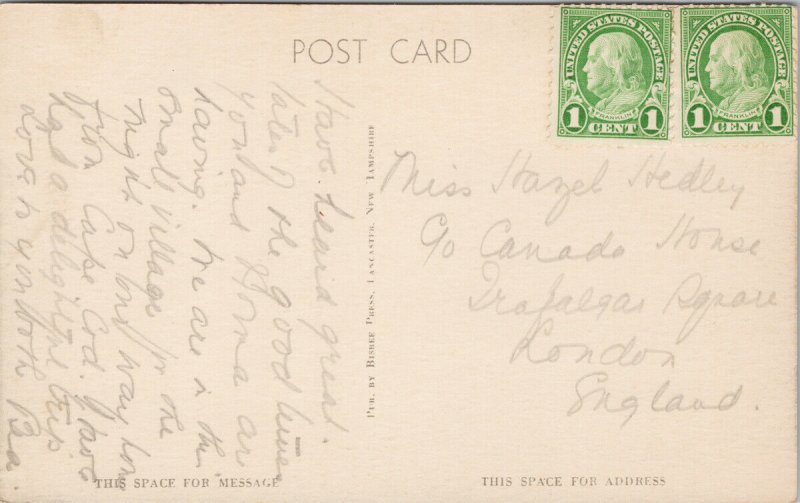 POST CARD
UNITED STATES POSTAGE
FRANKLIN
1 CENT 1
UNITED STATES POSTAGE
FRANKLIN
1 CENT 1
Have heard great
tales of the good times
you and are
having. We are in this
small village for the
night on our way home
from Cape Cod. Have
had a delightful trip
Love to you both Bea.
PUB. BY BISBEE PRESS, LANCASTER, NEW HAMPSHIRE
Miss Hazel Hedley
c/o Canada House
Trafalgar Square
London
England.
THIS SPACE FOR MESSAGE
THIS SPACE FOR ADDRESS